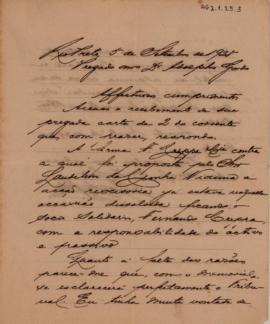 AG 2.1.25.3
Rio Preto, 5 de Setembro de
Prezado am.º Dr.
Affectuosos cumprimentos
Accuso o recebimento de sua
prezada carta de 2 do corrente
que, com prazer, respondo.
A firma & Cia contra
a qual foi proposta pelo Snr.
da Cunha Vianna a
acção já estava naquella
occasião dissolvida ficando o
socio solidario, Fernando
com a responsabilidade do activo
e passivo.
Quanto á das razões
parece-me que, com o memorial
se esclarecerá perfeitamente o Tribu-
nal. Eu tinha muita vontade de